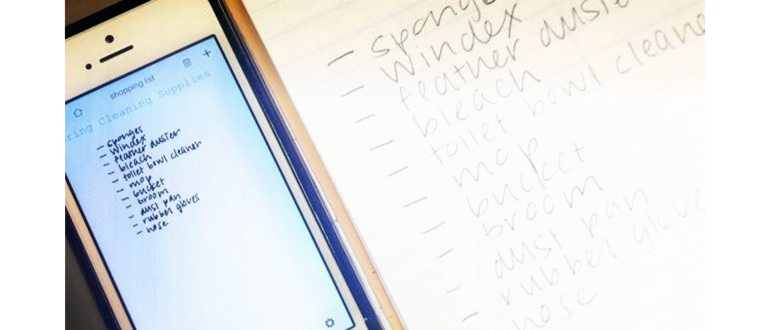 shopping list
ring Cleaning Supplies
- sponges
- Windex
- feather duster
- bleach
- toilet bowl cleaner
- mop
- bucket
- broom
- dust pan
- rubber gloves
- hose
- sponges
- Windex
- feather duster
- bleach
- toilet bowl cleaner
- mop
- bucket
- broom
- dust pan
- rubber gloves
- hose